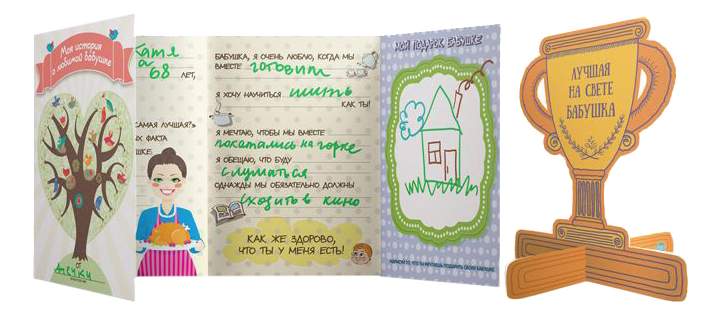 Моя история
о любимой бабушке
от
Анечки
Катя
а 68 ЛЕТ,
САМАЯ ЛУЧШАЯ?»
ЫХ ФАКТА
УШКЕ:
БАБУШКА, Я ОЧЕНЬ ЛЮБЛЮ, КОГДА МЫ
ВМЕСТЕ готовим
Я ХОЧУ НАУЧИТЬСЯ шить
КАК ТЫ!
Я МЕЧТАЮ, ЧТОБЫ МЫ ВМЕСТЕ
покатались на горке
Я ОБЕЩАЮ, ЧТО БУДУ
слушаться
ОДНАЖДЫ МЫ ОБЯЗАТЕЛЬНО ДОЛЖНЫ
сходить в кино
КАК ЖЕ ЗДОРОВО,
ЧТО ТЫ У МЕНЯ ЕСТЬ!
МОЙ ПОДАРОК БАБУШКЕ
НАРИСУЙ ТО, ЧТО ТЫ МЕЧТАЕШЬ ПОДАРИТЬ СВОЕЙ БАБУШКЕ
ЛУЧШАЯ
НА СВЕТЕ
БАБУШКА